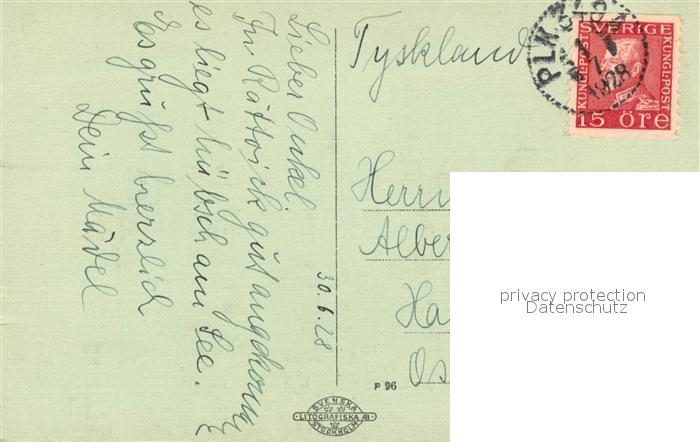 30.6.28
Lieber Onkel.
In Rättvick gut angekomm
es liegt hübsch am See.
Es grüsst herzlich
Dein Mädel
Tyskland
SVERIGE
KUNGL-POST
KUNGL-POST
15 ÖRE
PLK
1928
Herrn
Alber
Ha
Os
privacy protection
Datenschutz
P 96
SVENSKA
LITOGRAFISKA AB
STOCKHOLM